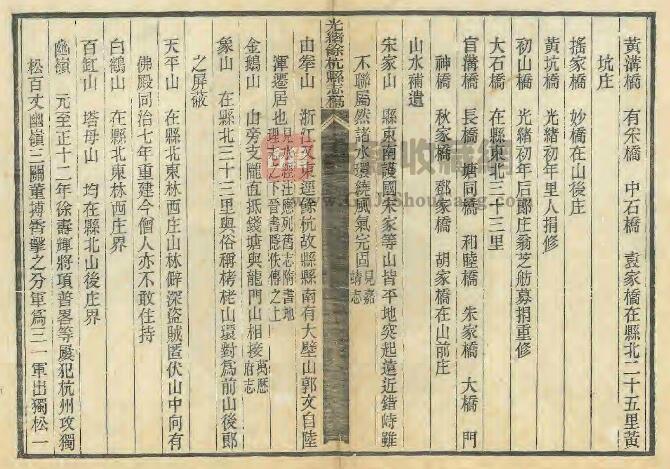 黃溝橋　有采橋　中石橋　袁家橋在縣北二十五里黃
坑庄
搖家橋　妙橋在山後庄
黃坑橋　光緒初年里人捐修
初山橋　光緒初年后郎庄翁芝舫募捐重修
大石橋　在縣東北三十三里
盲溝橋　長橋　塘同橋　和睦橋　朱家橋　大橋　門
神橋　秋家橋　鄧家橋　胡家橋在山前庄
山水補遺
宋家山　縣東南護國宋家等山皆平地突起遠近錯峙雖
不聯屬然諸水環繞風氣完固見嘉靖志
光緒餘杭縣志稿
由拳山　浙江又東逕餘杭故縣縣南有大壁山郭文自陸
渾遷居也見水經注應列舊志附書地理志之下晉書隱佚傳之上
金鵝山　山旁支隴直抵錢塘與龍門山相接萬歷府志
象山　在縣北三十三里與俗稱栲栳山環對爲前山後郎
之屏蔽
天平山　在縣北東林西庄山林僻深盜賊匿伏山中向有
佛殿同治七年重建今僧人亦不敢住持
白鶴山　在縣北東林西庄界
百缸山　塔母山　均在縣北山後庄界
幽嶺　元至正十二年徐壽輝將項普畧等屢犯杭州攻獨
松百丈幽嶺三關董搏霄擊之分軍爲三一軍出獨松一